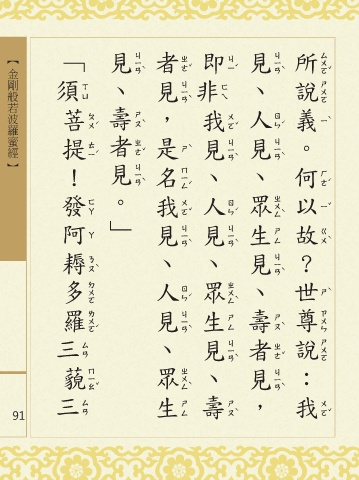 所說義。何以故？世尊說：我
見、人見、眾生見、壽者見，
即非我見、人見、眾生見、壽
者見，是名我見、人見、眾生
見、壽者見。」
「須菩提！發阿耨多羅三藐三
【金剛般若波羅蜜經】
91